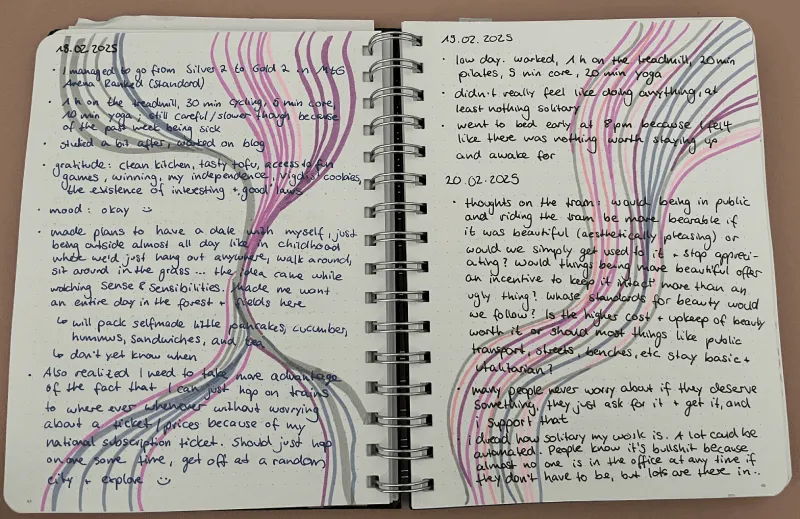 18.02.2025
• I managed to go from Silver 2 to Gold 2 in MtG
Arena Ranked (Standard)
• 1 h on the treadmill, 30 min cycling, 6 min core,
10 min yoga, still careful/slower though because
of the past week being sick
• studied a bit after, worked on blog
• gratitude: clean kitchen, tasty tofu, access to fun
games, winning, my independence, Vigdis' cookies,
the existence of interesting + "good" laws
• mood: okay ☺
• made plans to have a date with myself, just
being outside almost all day like in childhood
where we'd just hang out anywhere, walk around,
sit around in the grass... the idea came while
watching Sense & Sensibilities. Made me want
an entire day in the forest + fields here
↳ will pack selfmade little pancakes, cucumber,
hummus, sandwiches, and tea
↳ don't yet know when
• Also realized I need to take more advantage
of the fact that I can just hop on trains
to where ever whenever without worrying
about a ticket/prices because of my
national subscription ticket. Should just hop
on one some time, get off at a random
city + explore ☺
19.02.2025
• low day. worked, 1 h on the treadmill, 20 min
pilates, 5 min core, 20 min yoga
• didn't really feel like doing anything, at
least nothing solitary
went to bed early at 8pm because I felt
like there was nothing worth staying up
and awake for
20.02.2025
• thoughts on the tram: would being in public
and riding the tram be more bearable if
it was beautiful (aesthetically pleasing) or
would we simply get used to it + stop appreci-
ating? Would things being more beautiful offer
an incentive to keep it intact more than an
ugly thing? Whose standards for beauty would
we follow? Is the higher cost + upkeep of beauty
worth it or should most things like public
transport, streets, benches, etc stay basic +
utilitarian?
• many people never worry about if they deserve
something. they just ask for it + get it, and
i support that
• i dread how solitary my work is. A lot could be
automated. People know it's bullshit because
almost no one is in the office at any time if
they don't have to be, but lots are there in..